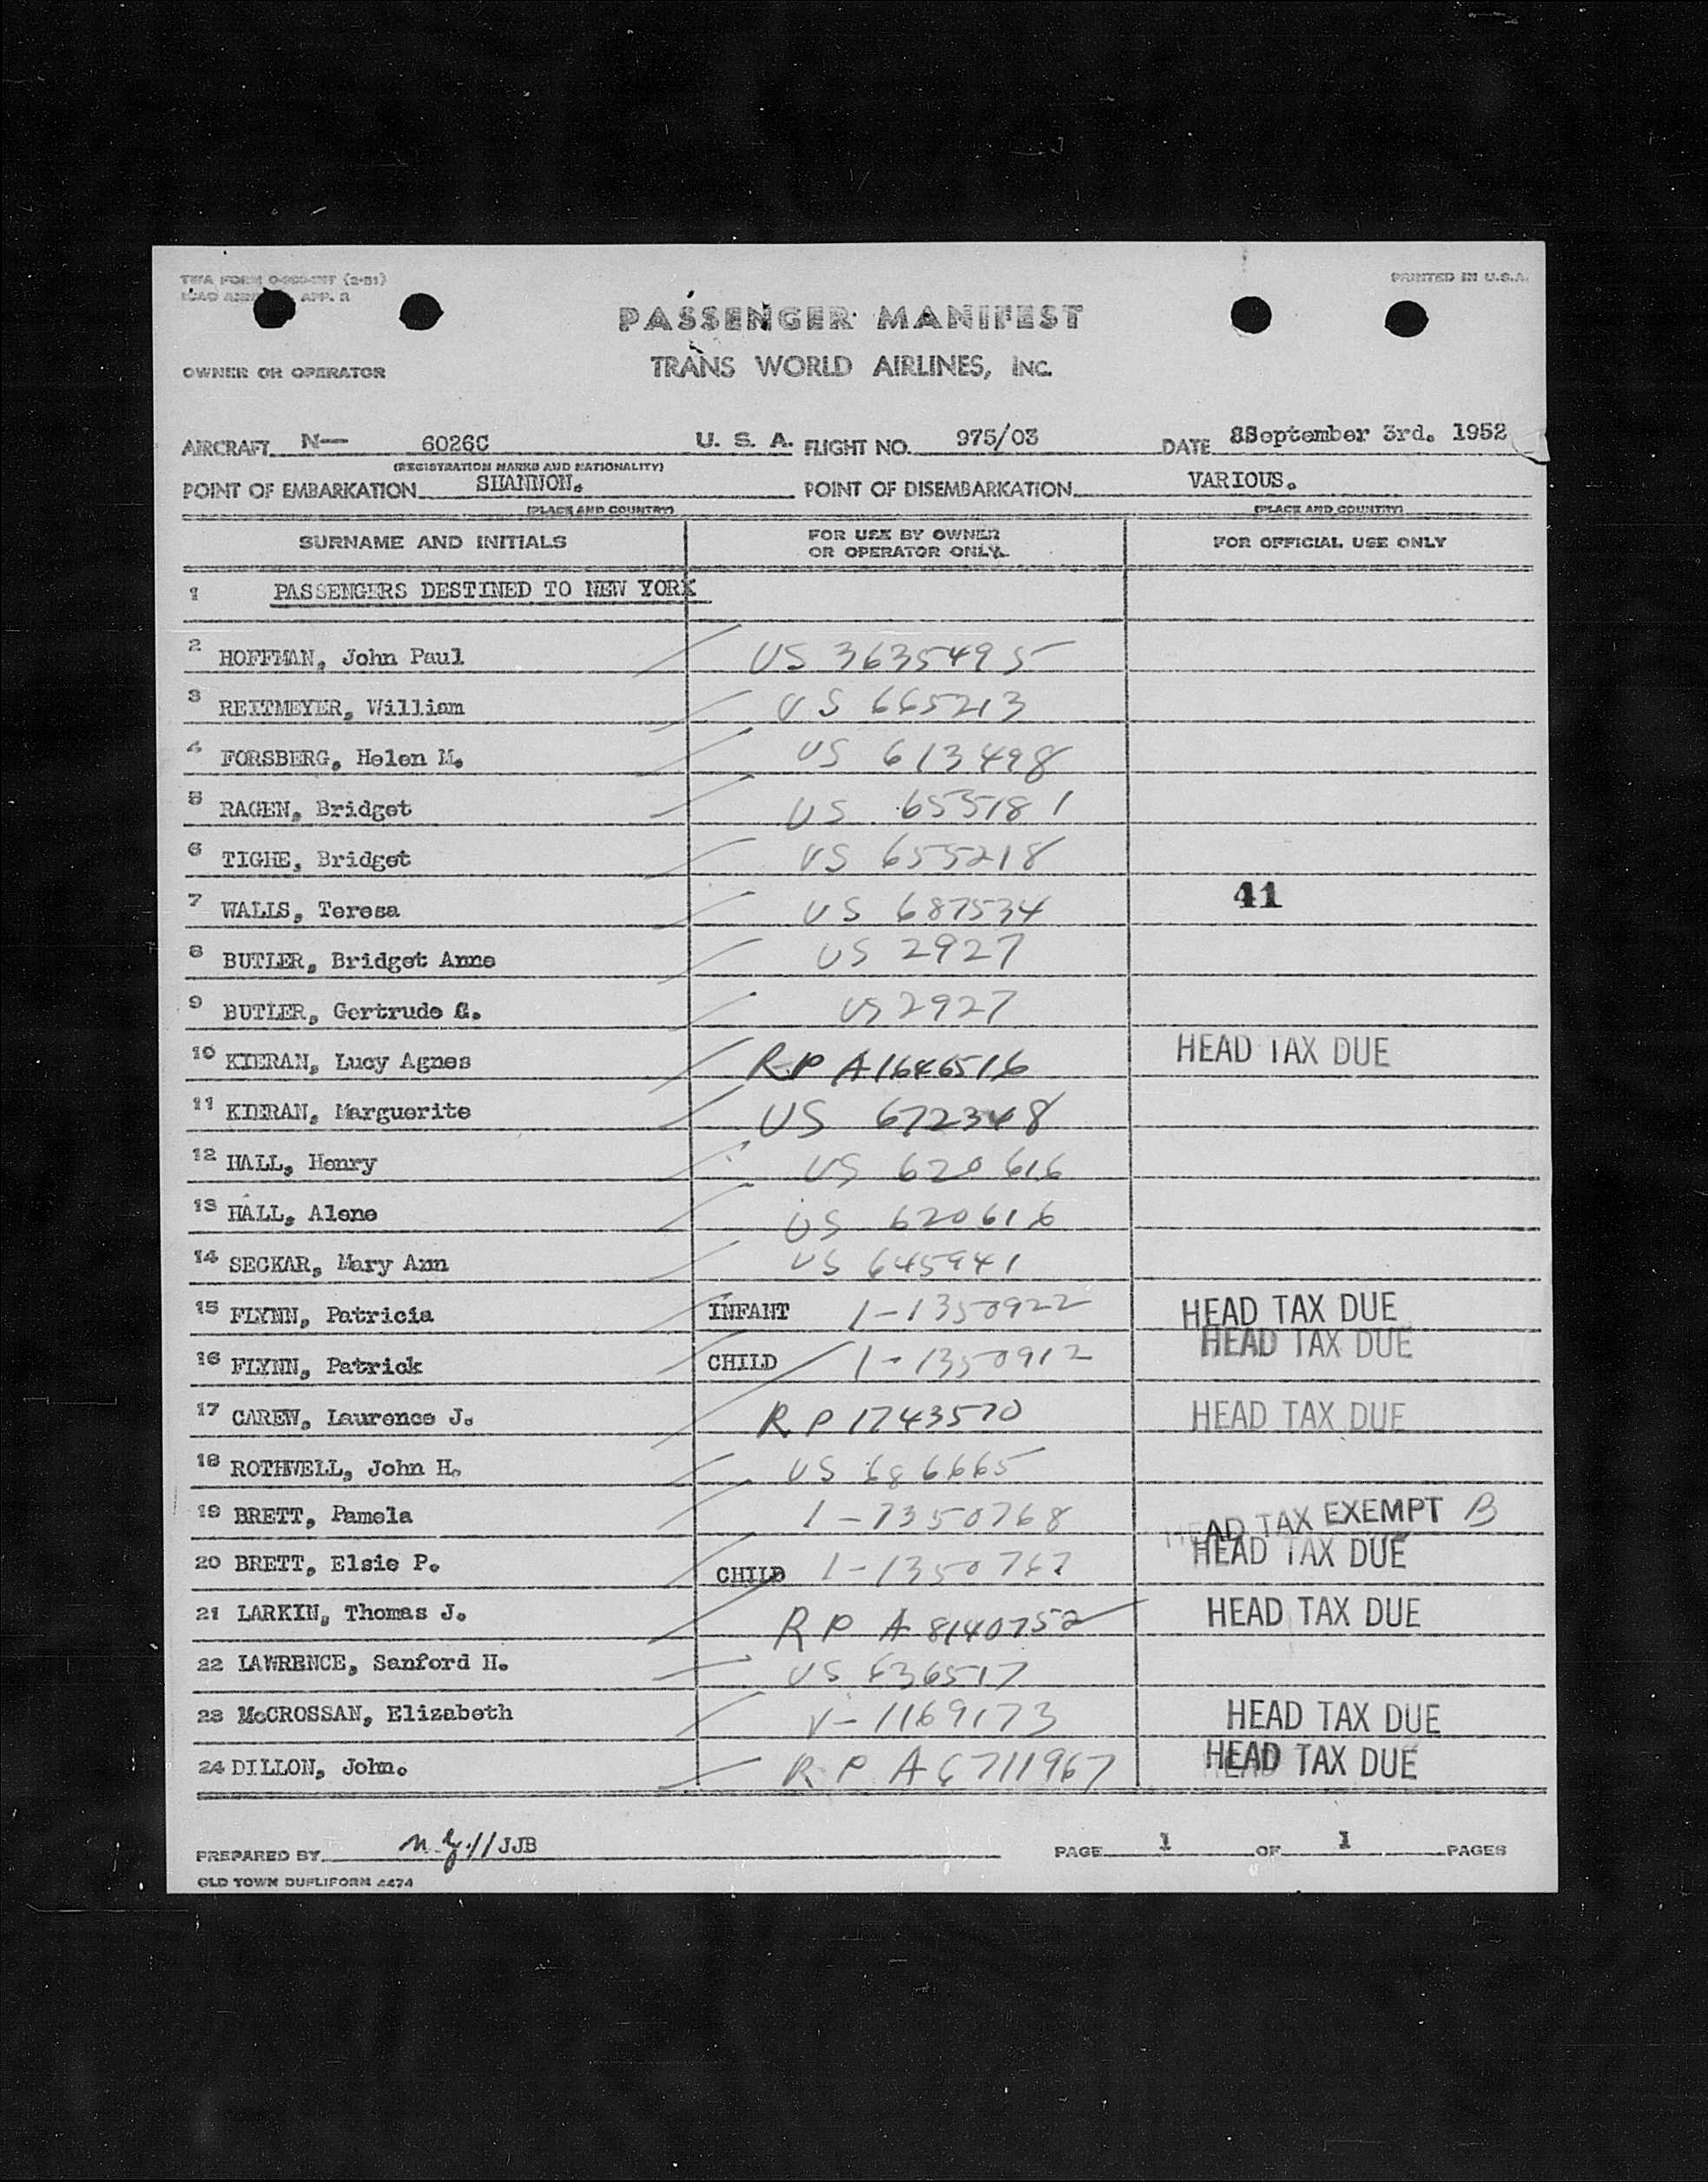 TWA FORM (2-51)
ICAO APP. 2
PRINTED IN U.S.A.
PASSENGER MANIFEST
OWNER OR OPERATOR TRANS WORLD AIRLINES, INC.
AIRCRAFT N— 6026C U. S. A. FLIGHT NO. 975/03 DATE September 3rd. 1952
(REGISTRATION MARKS AND NATIONALITY)
POINT OF EMBARKATION SHANNON. POINT OF DISEMBARKATION VARIOUS.
(PLACE AND COUNTRY) (PLACE AND COUNTRY)
SURNAME AND INITIALS FOR USE BY OWNER OR OPERATOR ONLY. FOR OFFICIAL USE ONLY
1 PASSENGERS DESTINED TO NEW YORK
2 HOFFMAN, John Paul US 3635495
3 REITMEYER, William US 665213
4 FORSBERG, Helen M. US 613498
5 RAGEN, Bridget US 653181
6 TIGHE, Bridget US 655218
7 WALLS, Teresa US 687534 41
8 BUTLER, Bridget Anne US 2927
9 BUTLER, Gertrude G. US 2927
10 KIERAN, Lucy Agnes RP A1646516 HEAD TAX DUE
11 KIERAN, Marguerite US 672348
12 HALL, Henry US 620616
13 HALL, Alene US 620616
14 SECKAR, Mary Ann US 645941
15 FLYNN, Patricia INFANT 1-1350922 HEAD TAX DUE
16 FLYNN, Patrick CHILD 1-1350912 HEAD TAX DUE
17 CAREW, Laurence J. RP 1743570 HEAD TAX DUE
18 ROTHWELL, John H. US 686665
19 BRETT, Pamela 1-1350768 HEAD TAX EXEMPT B
20 BRETT, Elsie P. CHILD 1-1350767 HEAD TAX DUE
21 LARKIN, Thomas J. RP A 8140752 HEAD TAX DUE
22 LAWRENCE, Sanford H. US 636517
23 McCROSSAN, Elizabeth V-1169173 HEAD TAX DUE
24 DILLON, John. RP A6711967 HEAD TAX DUE
PREPARED BY JJB PAGE 1 OF 1 PAGES
OLD TOWN DUPLIFORM 4474